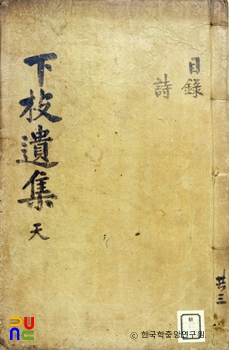 目錄
詩
下枝遺集 天
共三
PUNC
© 한국학중앙연구원